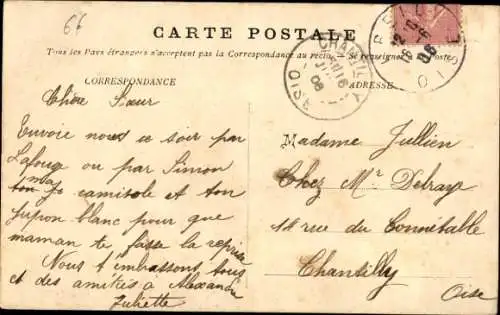 66
CARTE POSTALE
Tous les Pays étrangers n'acceptent pas la Correspondance au recto. - Se renseigner à la Poste
CORRESPONDANCE
ADRESSE
CHANTILLY
OISE
06
12
06
OISE
Chère Sœur
Envoie nous ce soir par
Lafouge ou par Simon
ma
camisole et ton
jupon blanc pour que
maman te fasse la reprise
Nous t'embrassons tous
et des amitiés à Alexandre
Juliette
Madame Jullien
Chez Mr Delraye
rue du Connétable
Chantilly
Oise